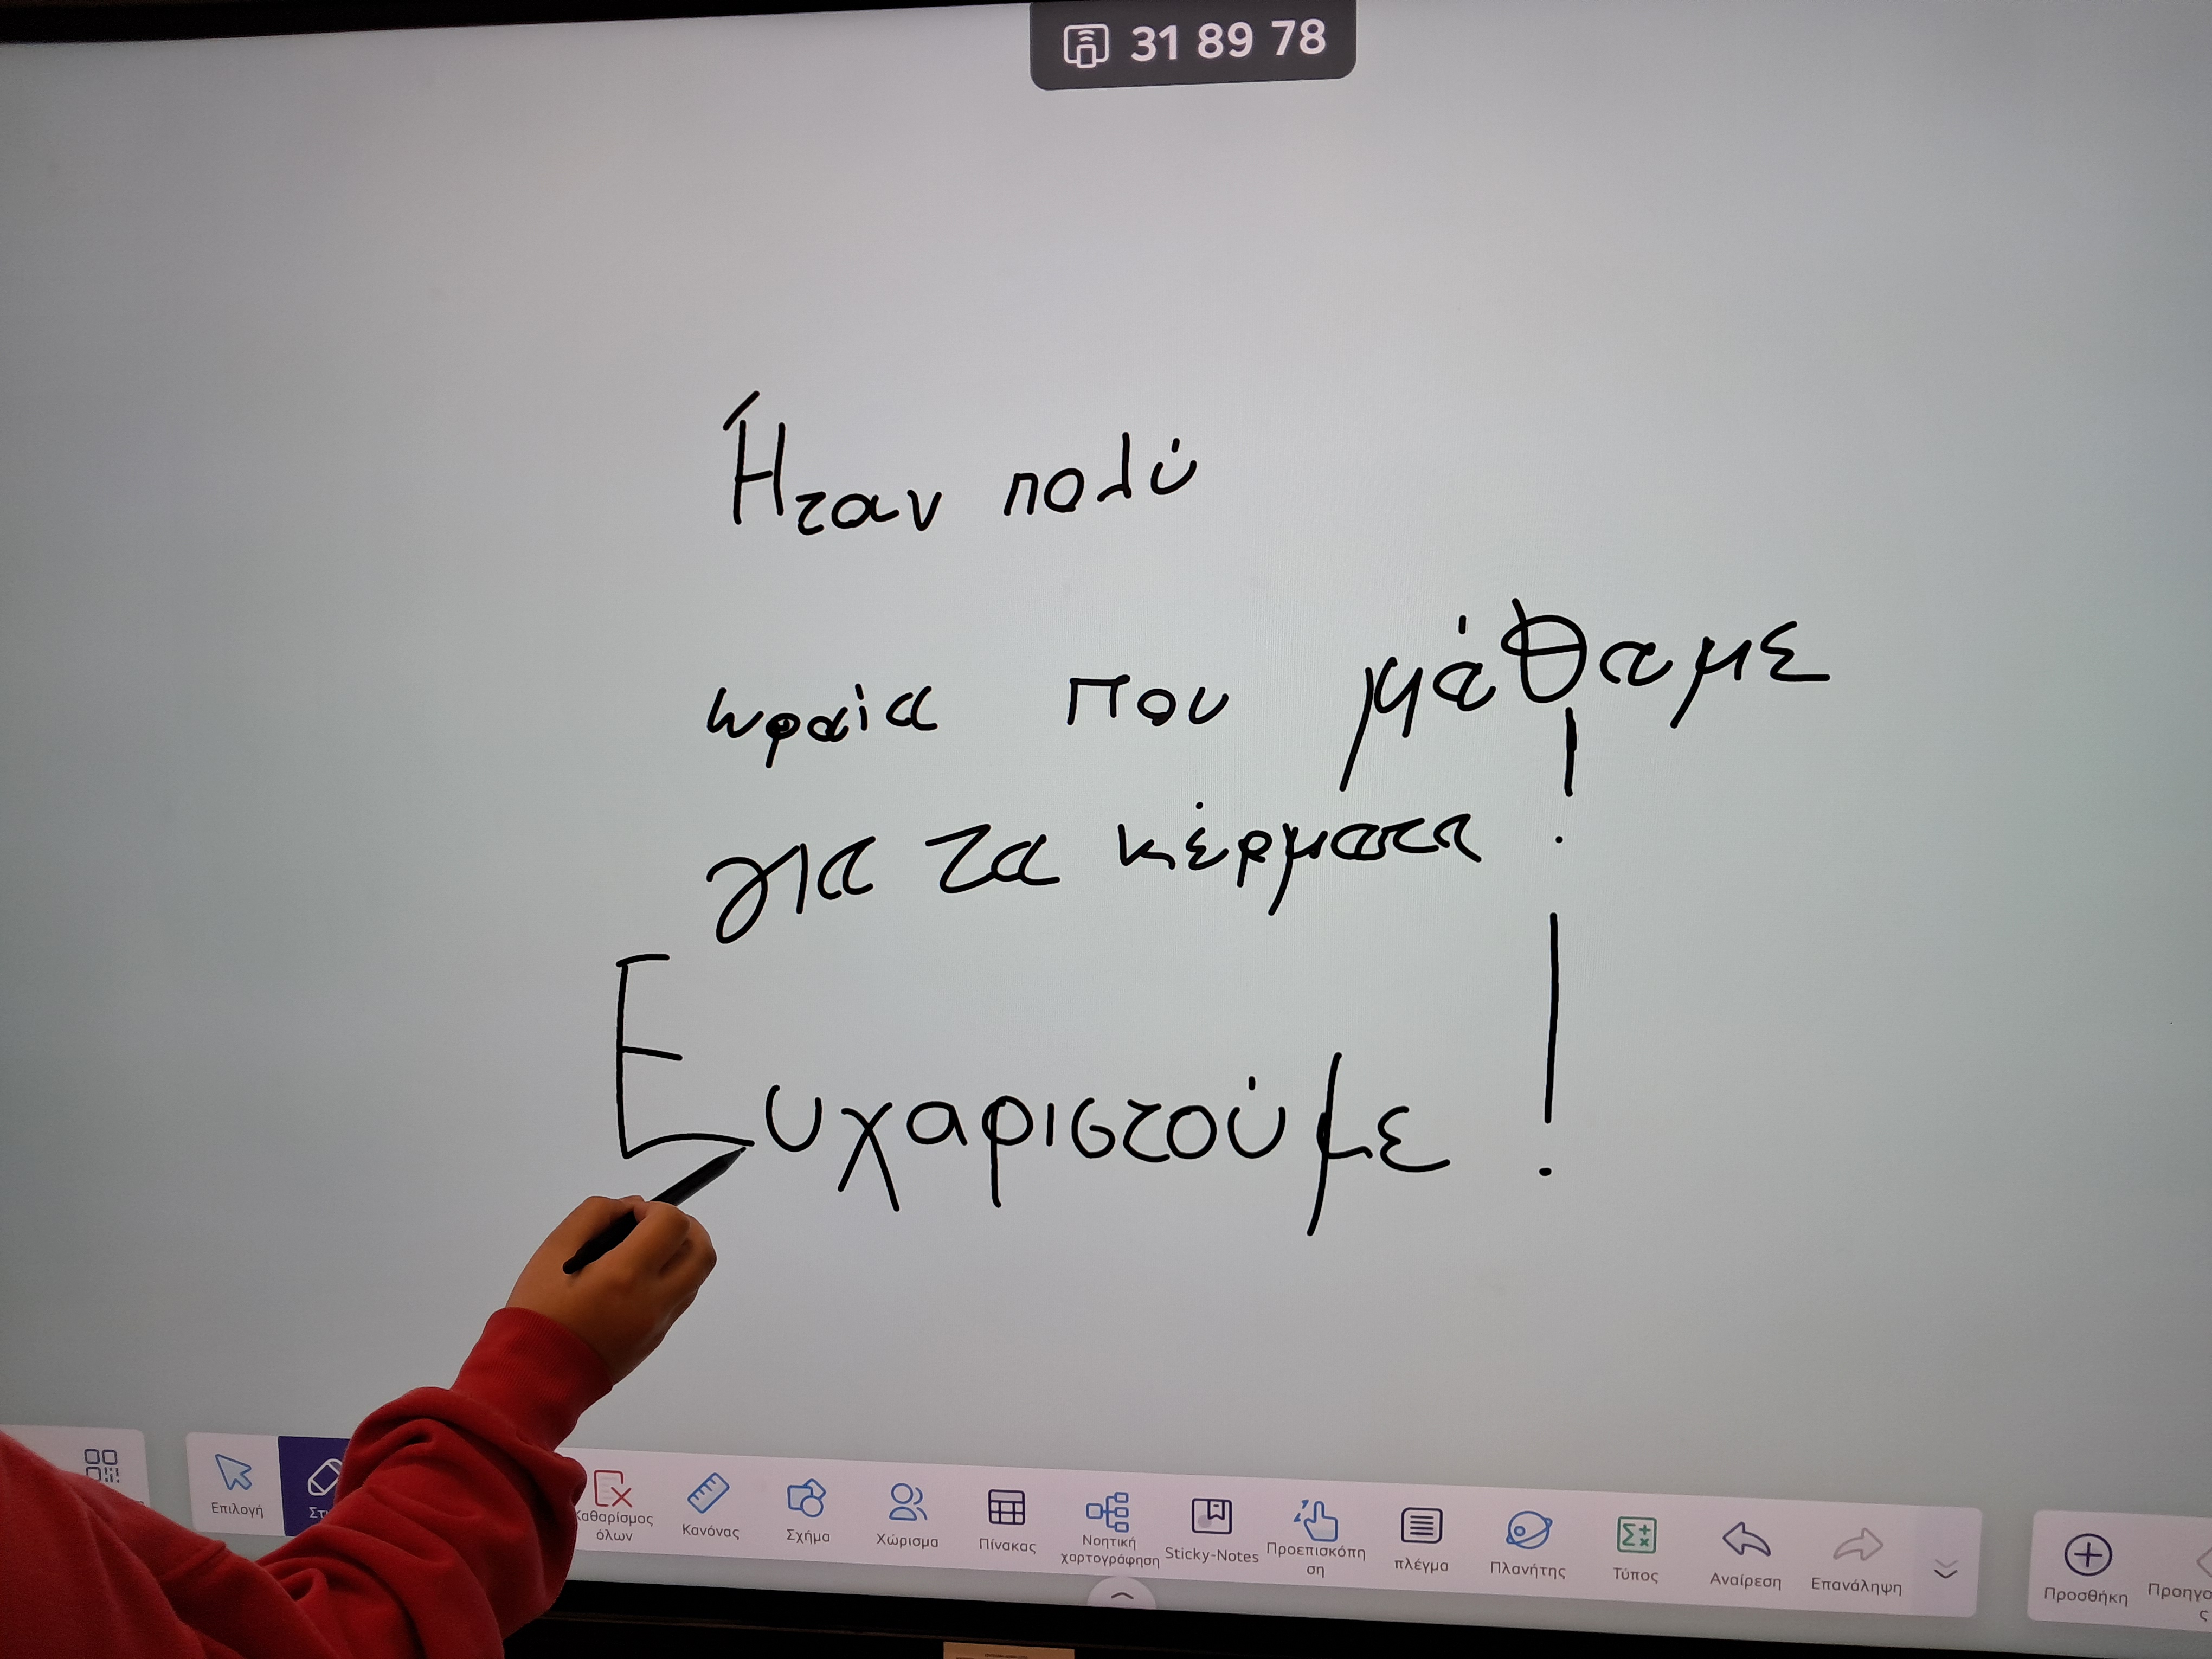 31 89 78
Ήταν πολύ
ωραία που μάθαμε
για τα κέρματα !
Ευχαριστούμε !
Επιλογή
Καθαρίσμος όλων
Κανόνας
Σχήμα
Χώρισμα
Πίνακας
Νοητική χαρτογράφηση
Sticky-Notes
Προεπισκόπηση
πλέγμα
Πλανήτης
Τύπος
Αναίρεση
Επανάληψη
Προσθήκη